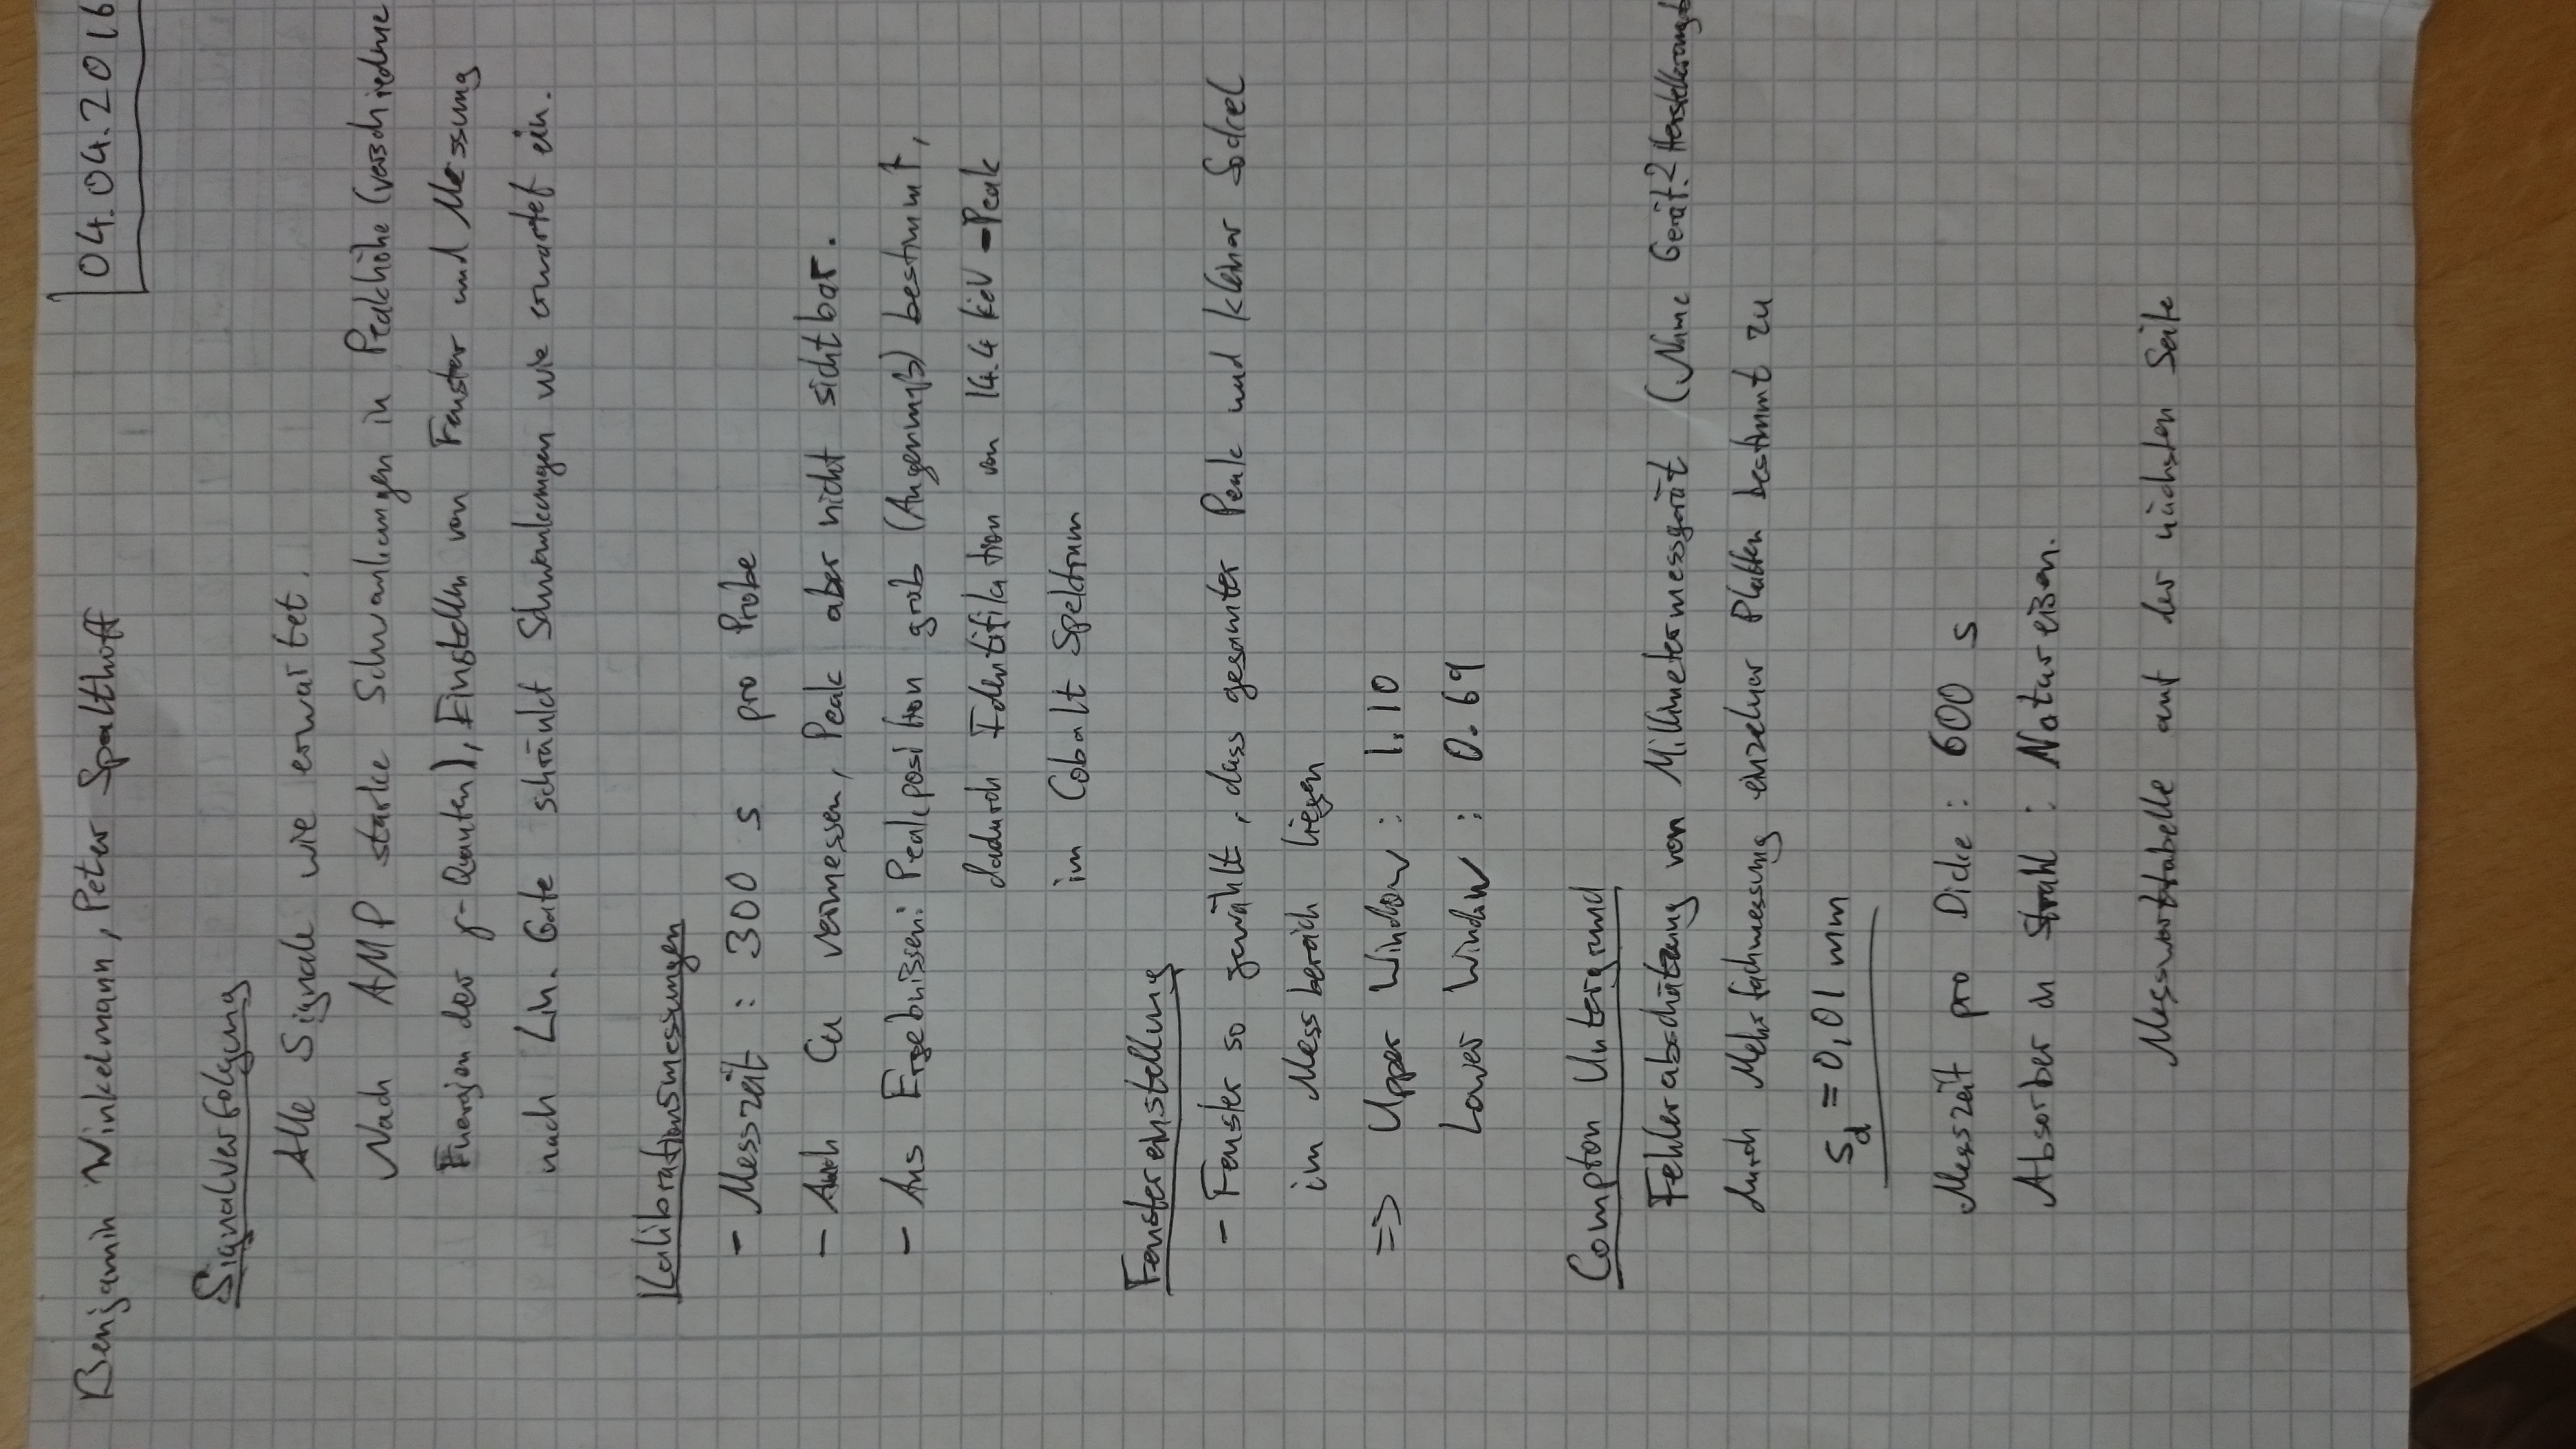 Benjamin Winkelmann, Peter Spalthoff
04.04.2016
Signalverfolgung
Alle Signale wie erwartet.
Nach AMP starke Schwankungen in Peakhöhe (verschiedene
Energien der γ-Quanten), Einstellen von Fenster und Messung
nach Lin. Gate schränkt Schwankungen wie erwartet ein.
Kalibrationsmessungen
- Messzeit : 300 s pro Probe
- Auch Cu vermessen, Peak aber nicht sichtbar.
- Aus Ergebnissen: Peakposition grob (Augenmaß) bestimmt,
dadurch Identifikation von 14.4 keV -Peak
im Cobalt Spektrum
Fenstereinstellung
- Fenster so gewählt, dass gesamter Peak und kleiner Sockel
im Messbereich liegen
=> Upper Window : 1.10
Lower Window : 0.69
Compton Untergrund
Fehlerabschätzung von Millimetermessgerät (Name Gerät? Herstellerangab
durch Mehrfachmessung einzelner Platten bestimmt zu
s_d = 0,01 mm
Messzeit pro Dicke : 600 s
Absorber in Strahl : Natureisen.
Messwerttabelle auf der nächsten Seite